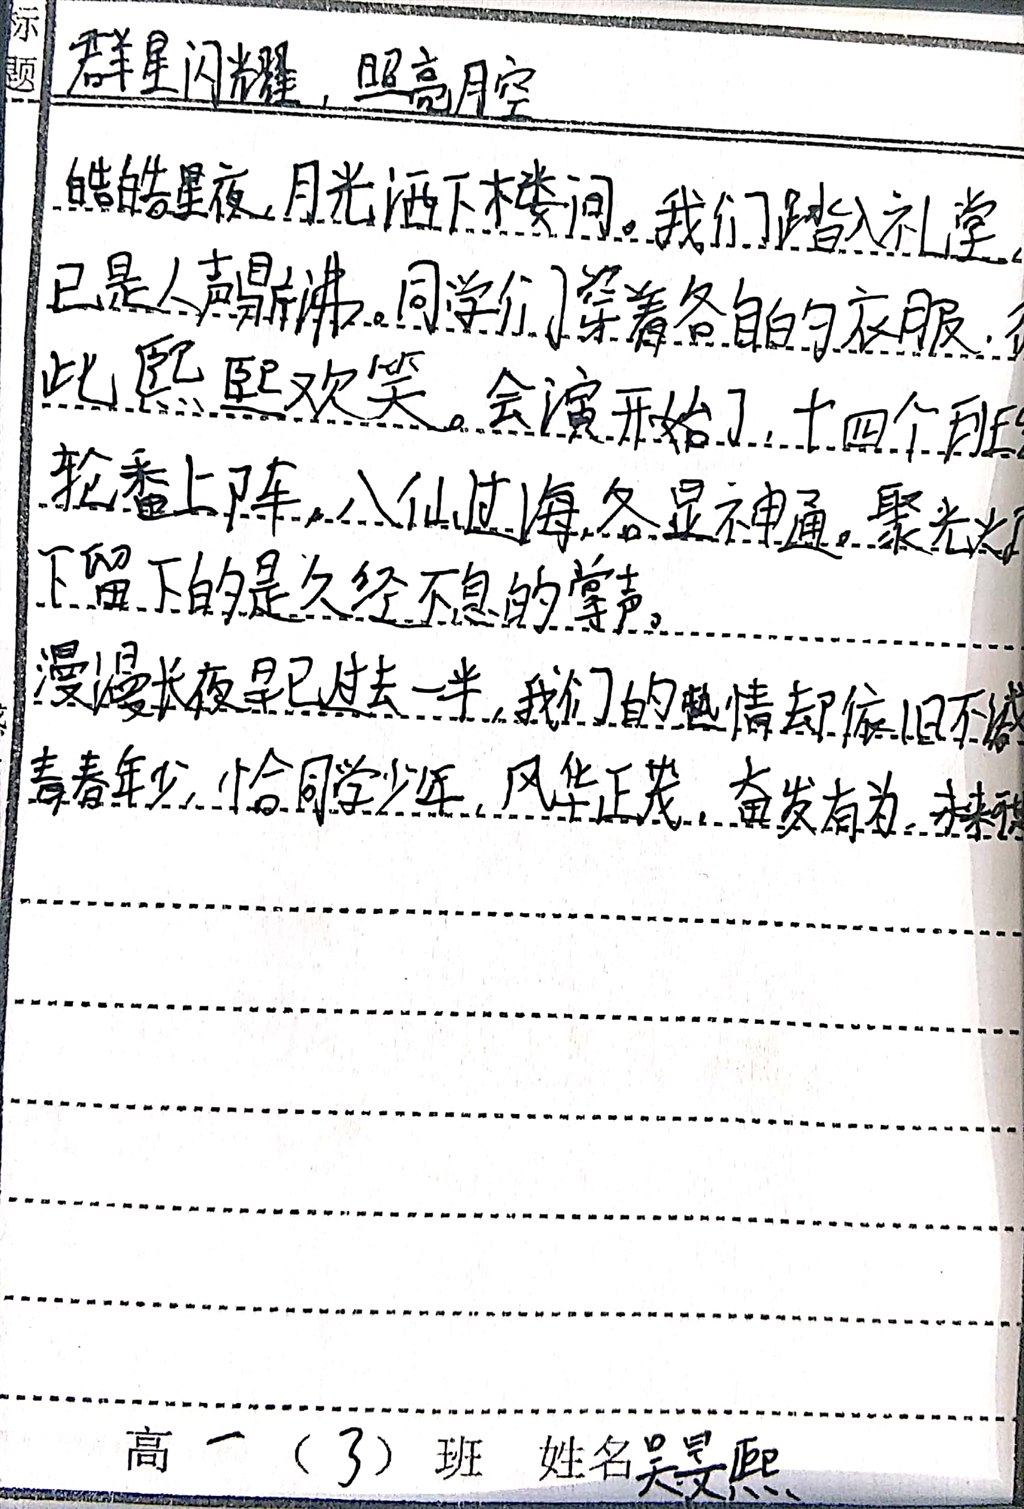 标题
群星闪耀，照亮月空
皓皓星夜，月光洒下楼间。我们踏入礼堂，
已是人声鼎沸。同学们穿着各自的衣服，
此熙熙欢笑。会演开始了，十四个班
轮番上阵，八仙过海，各显神通。聚光灯
下留下的是久经不息的掌声。
漫漫长夜早已过去一半，我们的热情却依旧不减
青春年少，恰同学少年，风华正茂，奋发有为，未来
高一（3）班 姓名吴旻熙